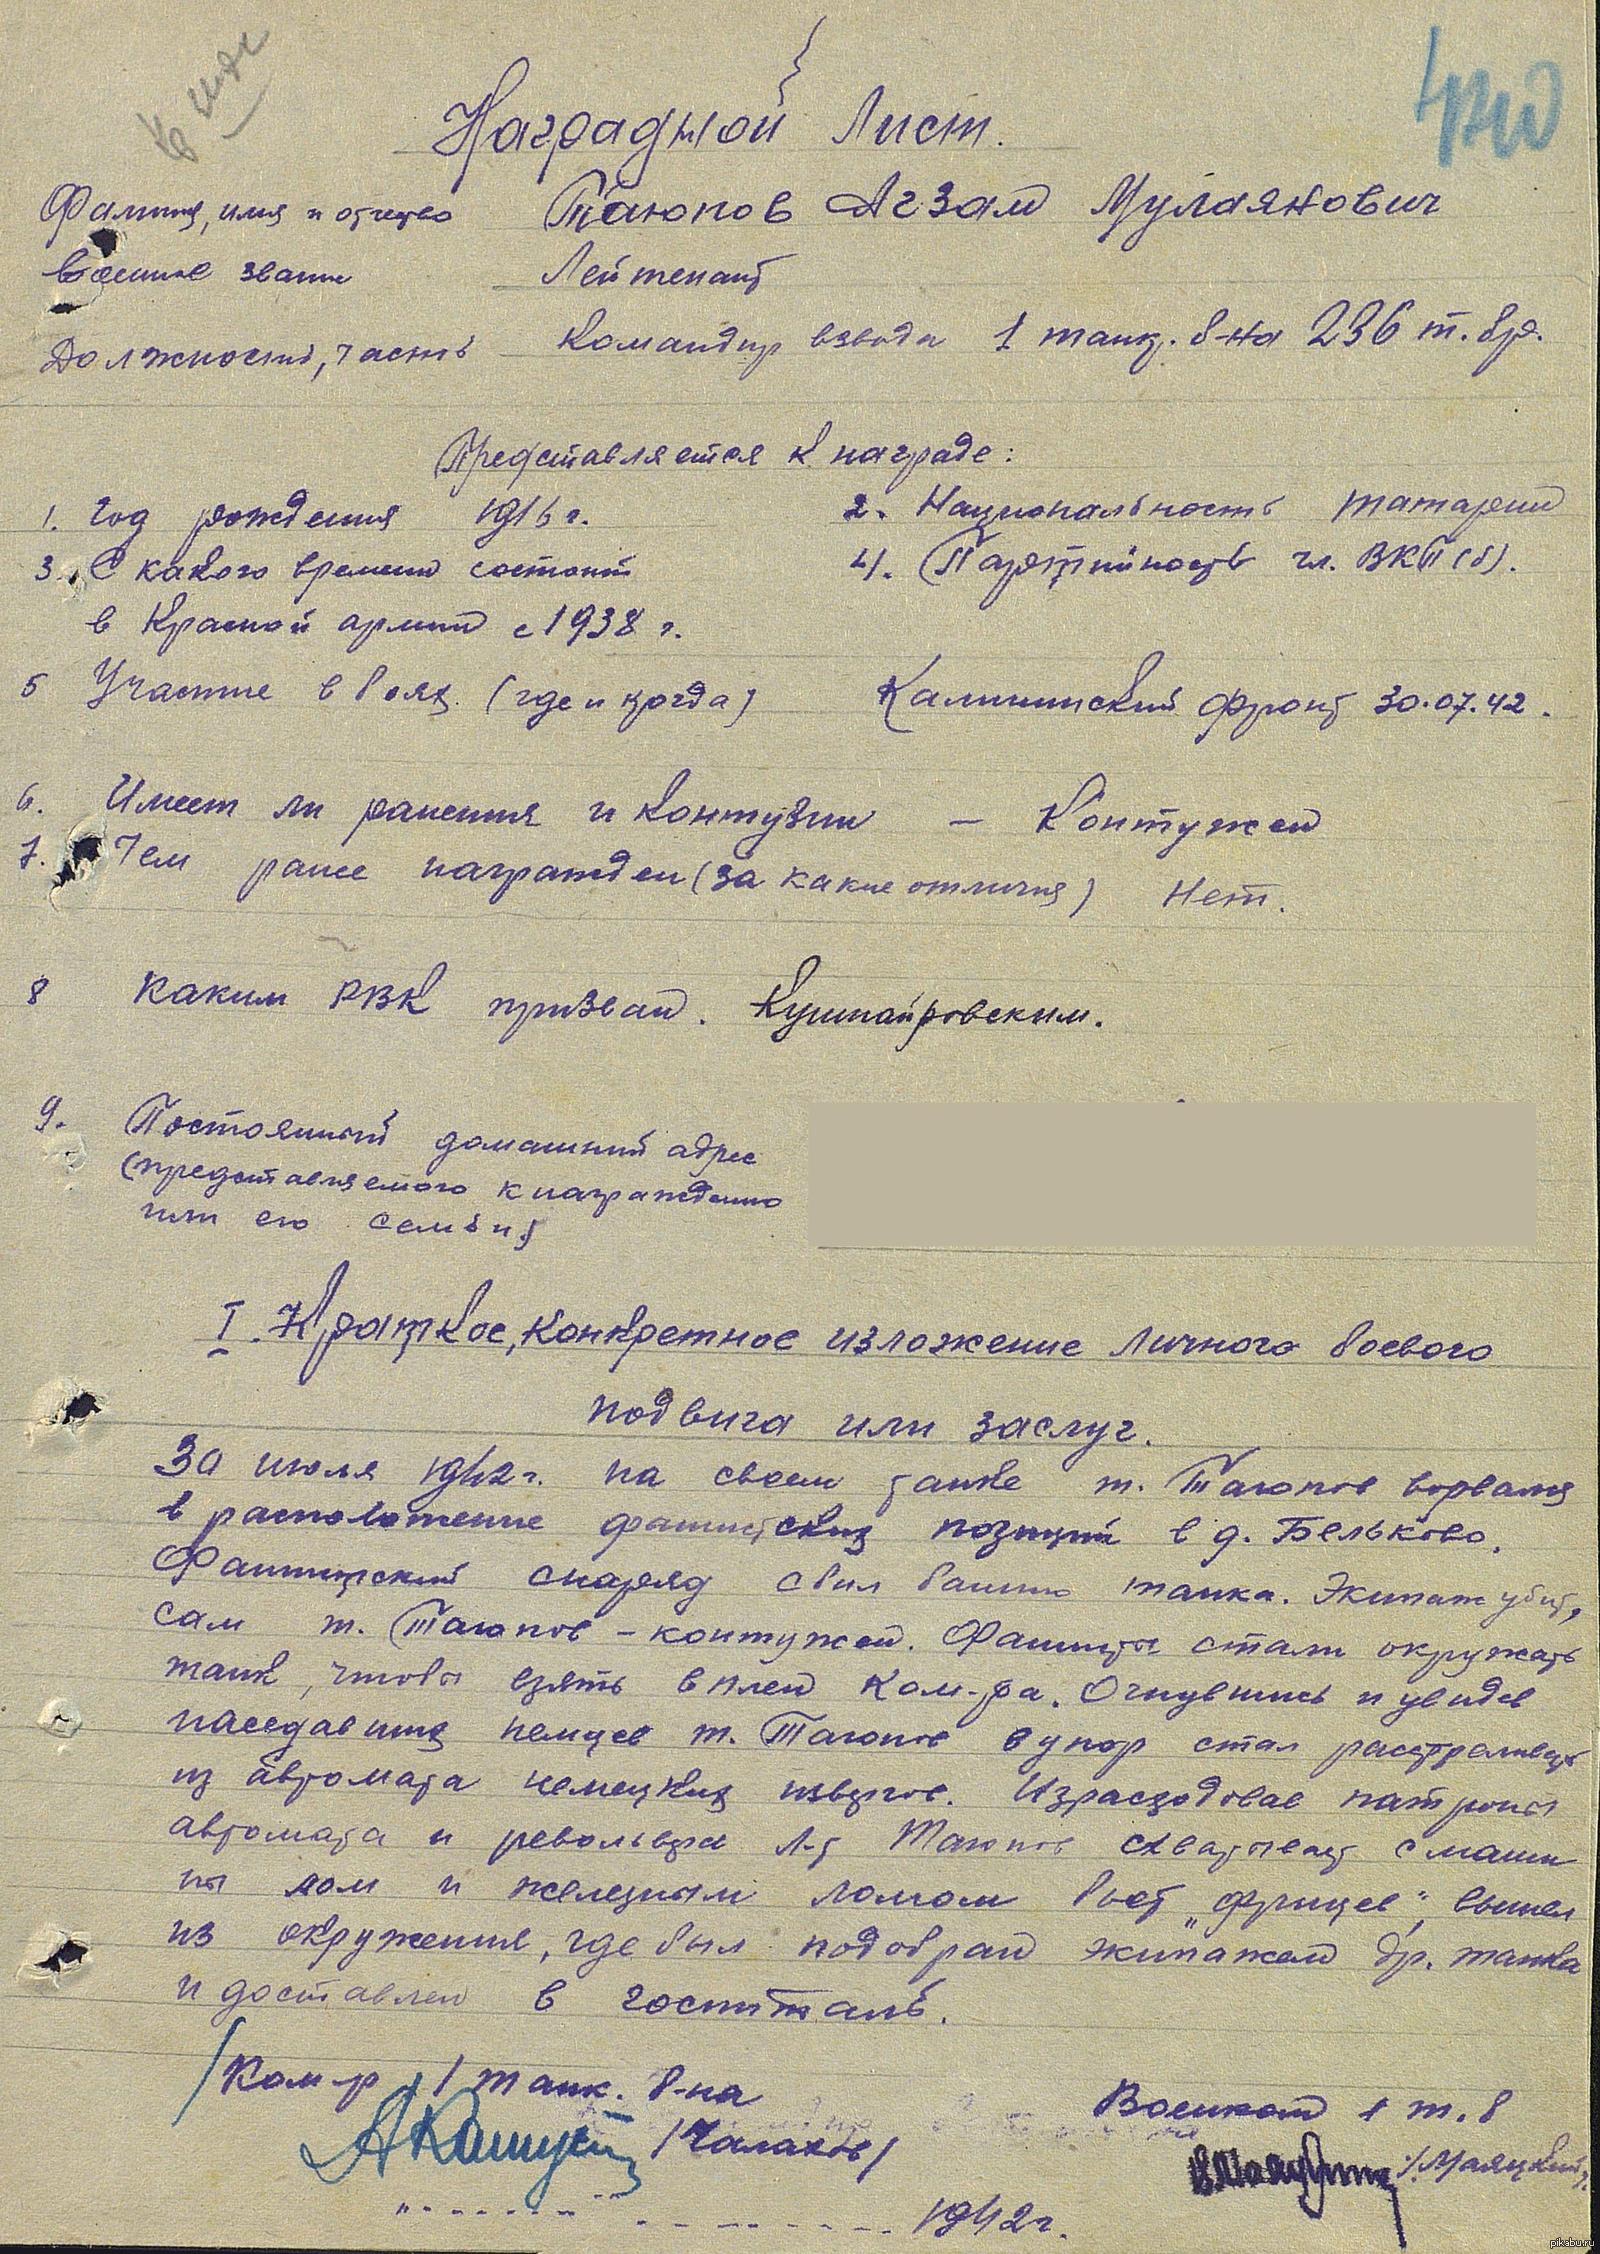 Наградной Лист.
Фамилия, имя и отчество Таюпов Агзам Мулаянович
Военное звание Лейтенант
Должность, часть Командир взвода 1 танк. б-на 236 т. бр.
Представляется к награде:
1. Год рождения 1916 г. 2. Национальность татарин
3. С какого времени состоит 4. Партийность чл. ВКП(б).
в Красной армии с 1938 г.
5 Участие в боях (где и когда) Калининский фронт 30.07.42.
6. Имеет ли ранения и контузии – Контужен
7. Чем ранее награжден (за какие отличия) Нет.
8 Каким РВК призван. Кушнайровским.
9. Постоянный домашний адрес
(представляемого к награждению
или его семьи)
I. Краткое, конкретное изложение личного боевого
подвига или заслуг.
30 июля 1942 г. на своем танке т. Таюпов ворвался
в расположение фашистских позиций в д. Бельково.
Фашистский снаряд сбил башню танка. Экипаж убит,
сам т. Таюпов – контужен. Фашисты стали окружать
танк, чтобы взять в плен ком-ра. Очнувшись и увидев
наседавших немцев т. Таюпов в упор стал расстреливать
из автомата немецких извергов. Израсходовав патроны
автомата и револьвера л-т Таюпов схватывает с маши
ны лом и железным ломом бьет „фрицев", вышел
из окружения, где был подобран экипажем др. танка
и доставлен в госпиталь.
/Ком-р 1 танк. б-на Военком 1 т. б
/Чалахов/ /Маяцкий/
1942 г.
pikabu.ru